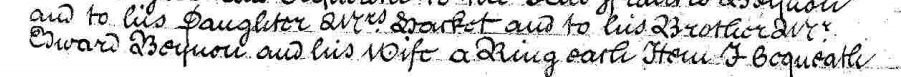 and to his Daughter Mrs. Hacket and to his Brother Mr.
Edward Bequon and his Wife a Ring each Item I Bequeath